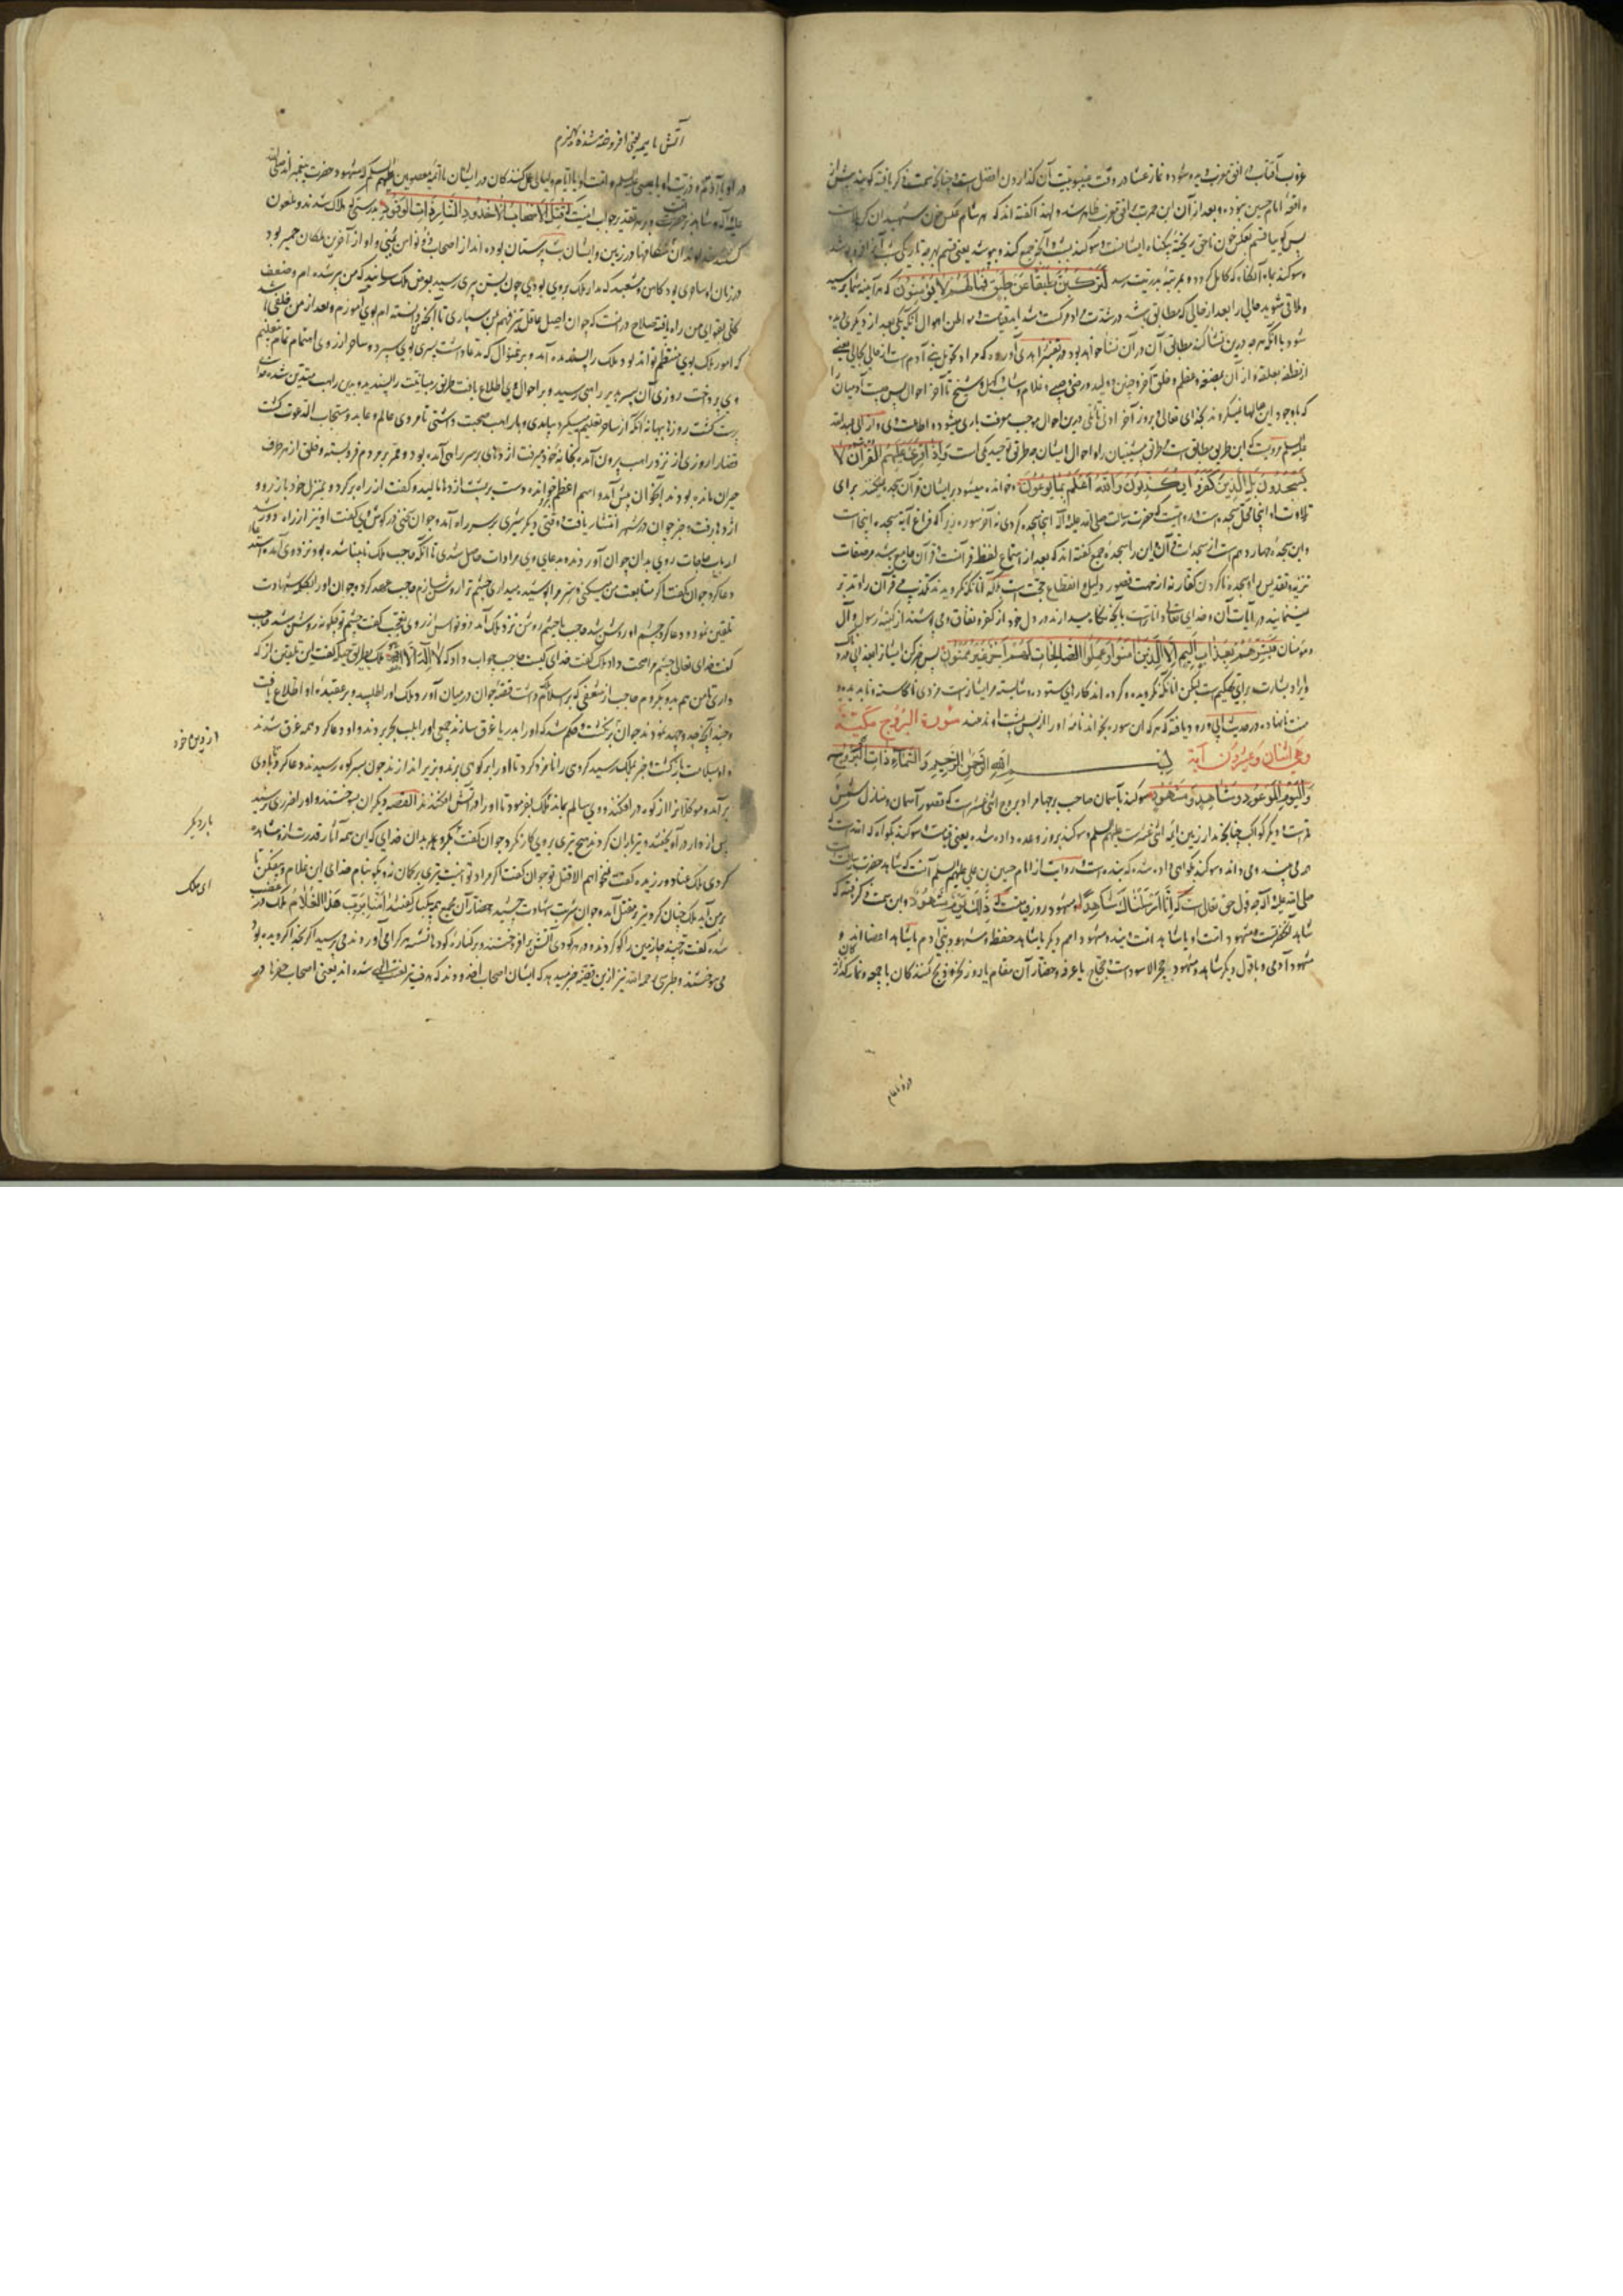 غروب آفتاب از افق مغرب دیده شود و نماز عشا در وقت غیبوبیت آن گذاردن افضل است چنانچه سمت ذکر یافته گویند پیش از
واقعه امام حسین نبوده و بعد از آن این حمرت بر افق مغرب ظاهر شده و لهذا گفته اند که هر شام عکس خون شهیدان کربلاست
پس گویا قسم بعکس خون ناحق ریخته بیگناه ایشانست و سوگند بشب و آنچه جمع کند و بپوشد یعنی قسم بهرچه تاریکی شب آنرا فرو پوشد
و سوگند بماه آنگاه که کامل گردد و بمرتبه بدریت رسد لَتَرْكَبُنَّ طَبَقًا عَنْ طَبَقٍ فَمَا لَهُمْ لَا يُؤْمِنُونَ که هر آینه شما برسید
و ملاقی شوید حالی را بعد از حالی که مطابق باشد در شدت و مراد مرگست و شداید قیامت و مواطن اهوال آنکه یکی بعد از دیگری دیده
شود یا آنکه هرچه درین نشأ کنند مطابق آن در آن نشأ خواهد بود و در تفسیر زاهدی آورده که مراد تحویل بنی آدم است از حالی بحالی یعنی
از نطفه بعلقه و از آن بمضغه و عظم و خلق آخر و جنین و ولید و رضیع و صبی و غلام و شاب و کهل و شیخ تا آخر احوال پس چیست آدمیان را
که با وجود این حالها نمیگروند بخدای تعالی و بروز آخر
علیه السلم مرویست که این طریق مطابق است طریق پیشینیان را و احوال ایشان وَإِذَا قُرِئَ عَلَيْهِمُ الْقُرْآنُ لَا
يَسْجُدُونَ بَلِ الَّذِينَ كَفَرُوا يُكَذِّبُونَ وَاللَّهُ أَعْلَمُ بِمَا يُوعُونَ و چون خوانده میشود بر ایشان قرآن سجده نمیکنند برای
تلاوت او اینجا محل سجده است و روایتست که حضرت رسالت صلی الله علیه و آله اینجا سجده کردی نه آخر سوره زیرا که فراغ آیه سجده اینجاست
و این سجده چهاردهم است از سجدات قرآن و این را سجده جمع گفته اند که بعد از استماع لفظ قرآنست و قرآن جامع باشد مر صفات
تنزیه و تقدیس را و سجده ناکردن کفار نه از جهت قصور دلیل و انقطاع حجت است بلکه آنانکه نگرویدند تکذیب می کنند قرآن را و تدبر
نمینمایند در آیات آن و خدای تعالی داناتر است بآنچه نگاه میدارند در دل خود از کفر و نفاق و می پوشند از کینه رسول و آل
و مؤمنان فَبَشِّرْهُمْ بِعَذَابٍ أَلِيمٍ إِلَّا الَّذِينَ آمَنُوا وَعَمِلُوا الصَّالِحَاتِ لَهُمْ أَجْرٌ غَيْرُ مَمْنُونٍ پس خبر کن ایشانرا بعذابی دردناک
و ایراد بشارت برای تهکیم است لیکن آنانکه گرویده و کرده اند کارهای ستوده و شایسته مر ایشانراست مزدی ناکاسته و نابریده و
منت نانهاده و در حدیث ابی ورود یافته که هر که این سوره بخواند نامه او را از پس پشت او ندهند سُورَة البُرُوج مَكِّيَّة
وَهِيَ اثْنَان وَعِشْرُون آيَة بِسْمِ اللَّهِ الرَّحْمَنِ الرَّحِيمِ وَالسَّمَاءِ ذَاتِ الْبُرُوجِ
وَالْيَوْمِ الْمَوْعُودِ وَشَاهِدٍ وَمَشْهُودٍ سوگند بآسمان صاحب برجها مراد بروج اثنی عشر است که قصور آسمان و منازل شمس
و قمر است و دیگر کواکب چنانچه مدار زمین ائمه اثنی عشرست علیهم السلم و سوگند بروز وعده داده شده یعنی قیامت و سوگند بگواه که الله است که
همه می بیند و می داند و سوگند بگواهی داده شده که بنده است و روایت از امام حسین بن علی علیهم السلم آنست که شاهد حضرت رسالت
صلی الله علیه و آله چه قول حق تعالی است که إِنَّا أَرْسَلْنَاكَ شَاهِدًا و مشهود روز قیامت که ذَلِكَ يَوْمٌ مَشْهُودٌ و ابن بحر می گرفته که
شاهد آنحضرتست و مشهود امت او یا شاهد امت وینند و مشهود امم دیگر یا شاهد حفظه و مشهود بنی آدم یا شاهد اعضا اند و
مشهود آدمی و باقول دیگر شاهد و مشهود حجر الاسودست و حجاج یا عرفه و حضار آن مقام یا روز نحر و ذبح کنندگان یا جمعه و نماز گذارندگان
آتش با هیمه یعنی افروخته شده بهیزم
در او یا آدم و ذریت او یا عیسی علیه السلم و امت او یا ایام و لیالی و عمل کنندگان در ایشان یا ائمه معصومین علیهم السلم و مشهود حضرت پیغمبر صلی الله
علیه و آله و شاهد بر حضرت و بر هر تقدیر جواب اینست که قُتِلَ أَصْحَابُ الْأُخْدُودِ النَّارِ ذَاتِ الْوَقُودِ بدرستی که هلاک شدند و ملعون
گشتند خداوندان شکافها در زمین و ایشان بت پرستان بوده اند از اصحاب ذونواس یمنی و او از آخرین ملکان حمیر بود
در زمان او ساحری بود کاهن و مشعبد که مدار ملک بروی بودی چون بسن پیری رسید بعرض ملک رسانید که من پیر شده ام و ضعف
کلی بقوای من راه یافته صلاح در آنست که جوان اصیل عاقل تیز فهم بمن سپاری تا آنچه من دانسته ام بوی آموزم و بعد از من خلفی باشد
که امور ملک بوی منتظم تواند بود ملک را پسندیده آمد و بر منوال که مدعا داشت پسری بوی سپرد و ساحر از روی اهتمام تمام بتعلیم
وی پرداخت روزی آن پسر بدیر راهبی رسید و بر احوال وی اطلاع یافت طریق رهبانیت را پسندید و بدین راهب متدین شده خدا
پرست گشت روزها ببهانه آنکه از ساحر تعلیم میگیرد بیامدی و با راهب صحبت داشتی تا مردی عالم و عابد و مستجاب الدعوت گشت
قضا را روزی از نزد راهب بیرون آمده بخانه خود میرفت اژدهای بر سر راهی آمده بود و ممر بر مردم فرو بسته و خلق از هر طرف
حیران مانده بودند آنجوان پیش آمد و اسم اعظم خوانده دست بر پشت اژدها مالید و گفت از راه برگرد و بمنزل خود باز رو
اژدها برفت و خبر جوان در شهر انتشار یافت و وقتی دیگر شیری بر سر راه آمد و جوان سخنی در گوش وی گفت او نیز از راه دور شد
ارباب حاجات روی بدان جوان آوردند و بدعای وی مرادات حاصل شدی تا آنگه حاجب ملک نابینا شده بود نزد وی آمد و استدعا
دعا کرد جوان گفت اگر متابعت من میکنی و سر مرا پوشیده میداری چشم ترا روشن سازم حاجب عهد کرد و جوان او را کلمه شهادت
تلقین نمود و دعا کرد چشم او روشن شد حاجب با چشم روشن نزد ملک آمد ذونواس از روی تعجب گفت چشم تو چگونه روشن شد حاجب
گفت خدای تعالی چشم مرا صحت داد ملک گفت خدای کیست حاجب جواب داد که لَا إِلَهَ إِلَّا اللَّهُ ملک بطریق حیله گفت این تلقین از که
داری تا من هم بدو بگروم حاجب از شعفی که بر اسلام داشت قصه جوان در میان آورد ملک او را طلبید و بر عقیده او اطلاع یافت
و چند آنچه جد و جهد نمودند جوان برنگشت و حکم شد که او را بدریا غرق سازند جمعی او را بلب بحر بردند و او دعا کرد همه غرق شدند
و او بسلامت بازگشت و خبر بملک رسید گردی را نامزد کرد تا او را بر کوهی برند و بزیر اندازند چون بسر کوه رسیدند دعا کرد تا بادی
برآمده موکلانرا از کوه در افکند و وی سالم بماند ملک بفرمود تا او را در آتش افکندند القصه دیگران بسوختند و او را ضرری نرسید
پس از دار درآویختند و تیرباران کردند هیچ تیری بر وی کار نکرد جوان گفت ملک بگرو بدان خدای که این همه آثار قدرت از و مشاهده
کردی ملک عناد ورزیده گفت نخواهم الا قتل تو جوان گفت اگر مراد تو اینست تیری بر کمان نه و بگو بنام خدای این غلام و بیفکن تا
بر من آید ملک چنان کرد و تیر بر مقتل آمده جوان شربت شهادت چشید حضار آن مجمع همه یکبار گفتند آمَنَّا بِرَبِّ هَذَا الْغُلَام ملک در غضب
شده گفت چند جا زمین را گو کردند و در هر گودی آتش برافروختند و بر کناره گودها نشسته هر کرا می آوردند می پرسید اگر بخدا گرویده بود
می سوختند و طبری رحمه الله نیز ازین قصه خبر میدهد که ایشان اصحاب اخدودند که هدف تیر لعنت الهی شده اند یعنی اصحاب حفرها در
از دین خود
بار دیگر
ای ملک